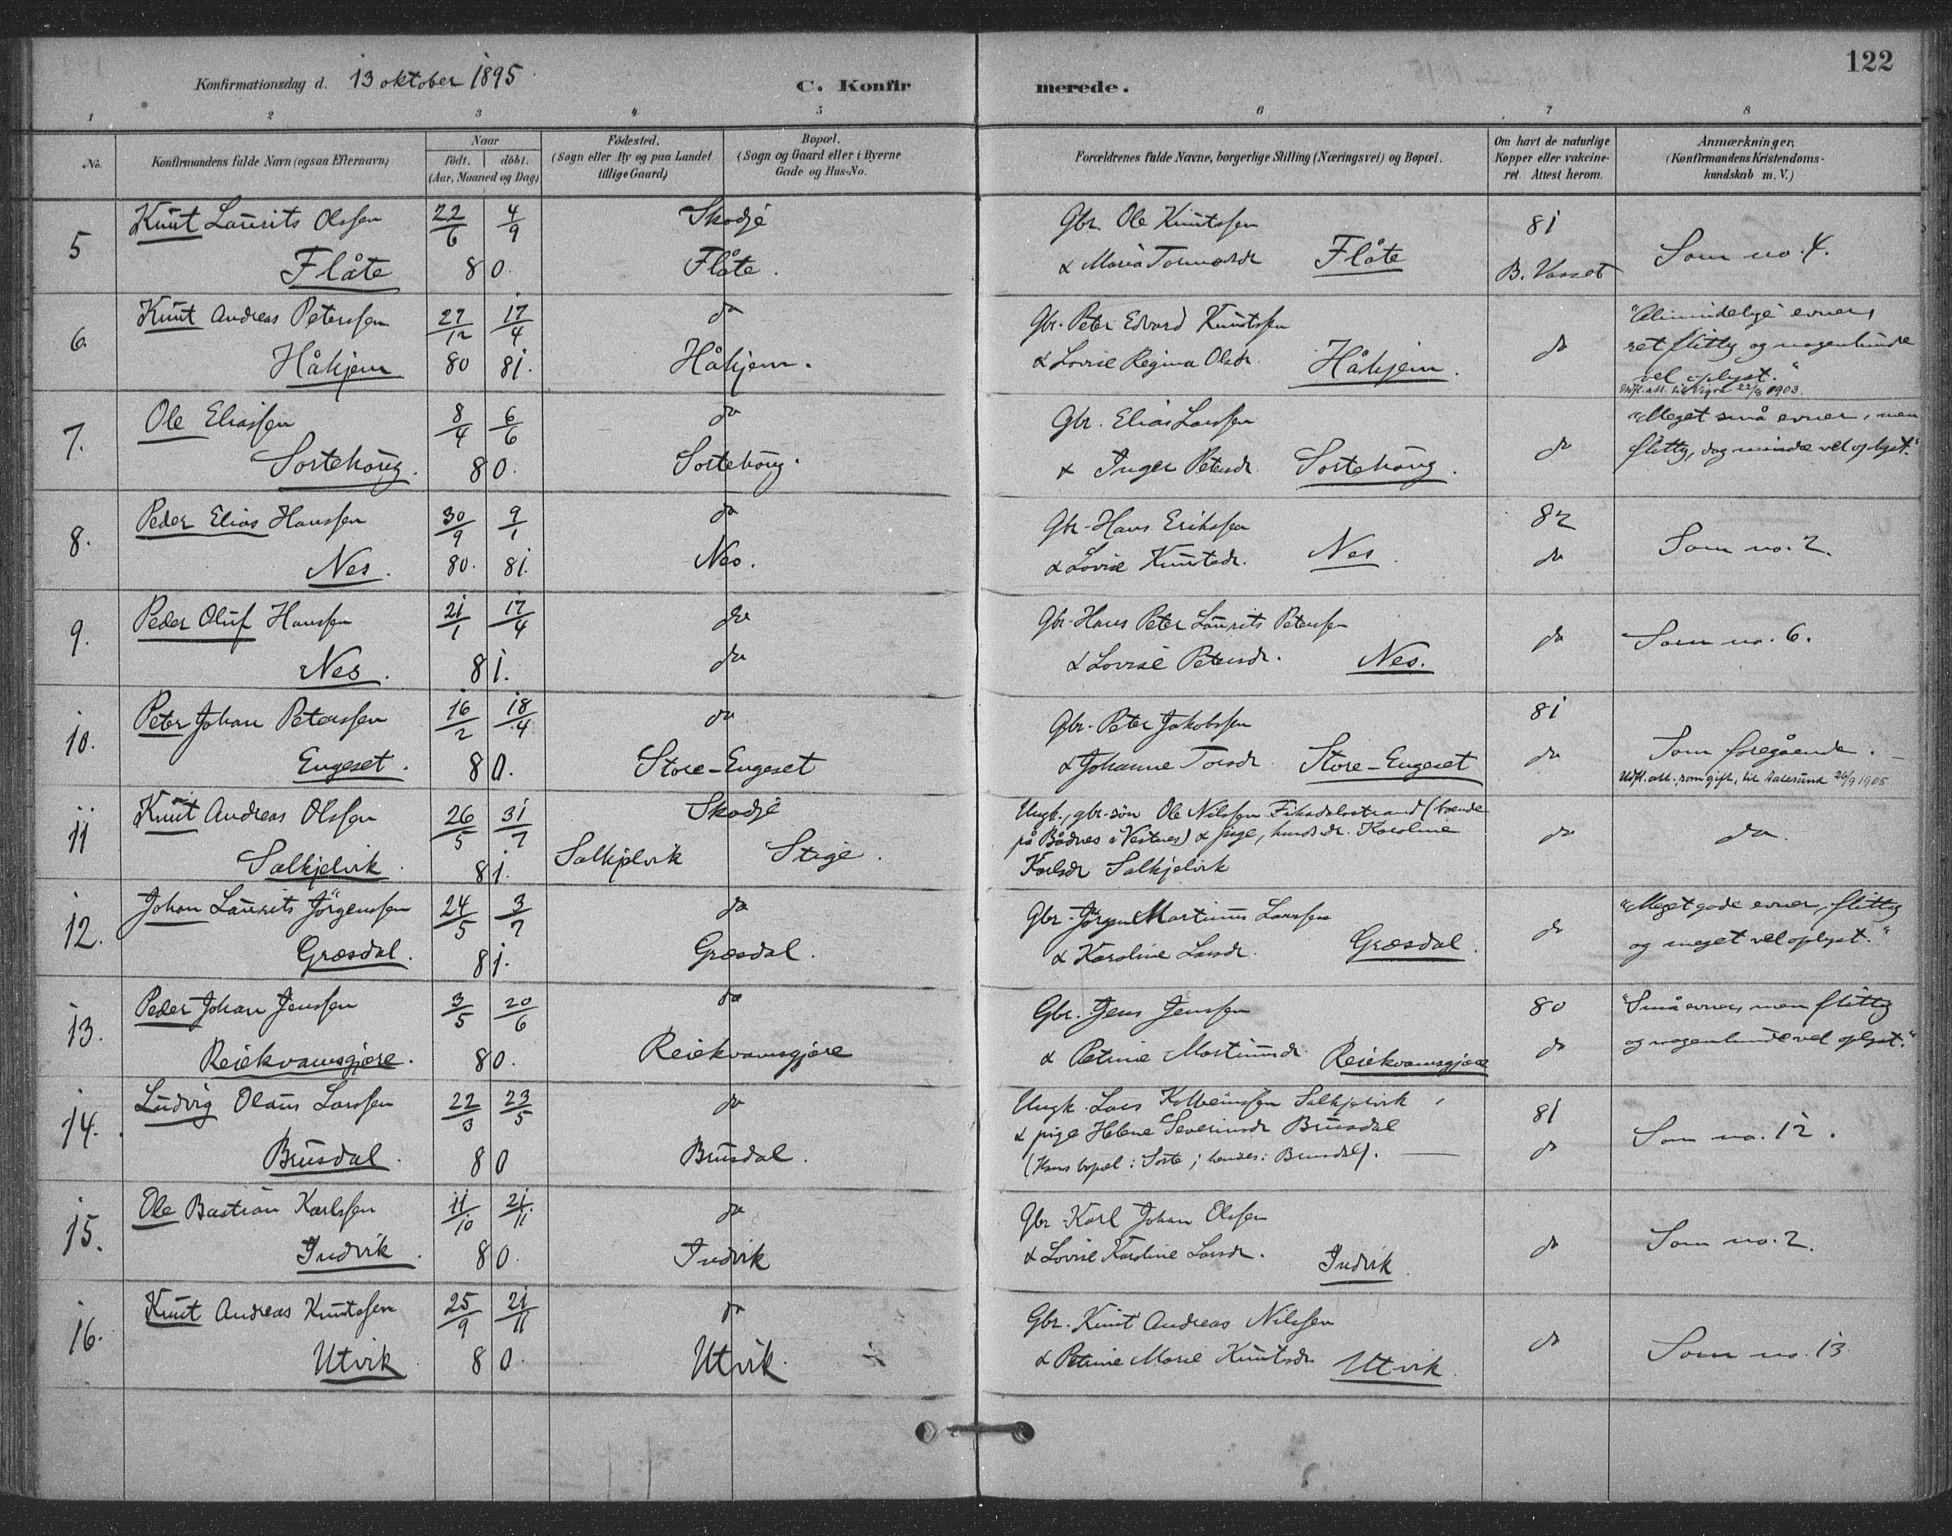 122
Konfirmationsdag d. 13 oktober 1895
C. Konfirmerede.
1 2 3 4 5 6 7 8
No.
Konfirmandens fulde Navn (ogsaa Efternavn)
Naar
født. døbt.
(Aar, Maaned og Dag)
Fødested.
(Sogn eller By og paa Landet
tillige Gaard)
Bopæl.
(Sogn og Gaard eller i Byerne
Gade og Hus-No.
Forældrenes fulde Navne, borgerlige Stilling (Næringsvei) og Bopæl.
Om havt de naturlige
Kopper eller vakcine-
ret. Attest herom.
Anmærkninger,
(Konfirmandens Kristendoms-
kundskab m. V.)
5 Knut Laurits Olssen 22/6 4/9 Skodje Gbr. Ole Knutssen 81
Flåte 80. Flåte. & Maria Flåte B. Vasset Som no. 4.
6. Knut Andreas Peterssen 27/12 17/4 do Gbr. Peter Edvard Knutssen do "Almindelige evner,
Håhjem 80 81. Håhjem. & Lovise Regina Olsdr Håhjem. ret flittig og nogenlunde
vel oplyst."
Udfl. att. til Vigra 22/8 1903.
7. Ole Eliassen 8/4 6/6 do Gbr. Elias Larssen do "Meget små evner, men
Sortehoug. 80. Sortehoug. & Inger Petersdr. Sortehoug. flittig, dog mindre vel oplyst."
8. Peder Elias Hanssen 30/9 9/1 do Gbr. Hans Erikssen 82
Nes. 80. 81. Nes. & Lovise Knutsdr. Nes. do Som no. 2.
9. Peder Oluf Hanssen 21/1 17/4 do Gbr. Hans Peter Laurits Peterssen do Som no. 6.
Nes. 81. do & Lovise Petersdr. Nes.
10. Peter Johan Peterssen 16/2 18/4 do Gbr. Peter Jakobssen 81
Engeset. 80. Store-Engeset & Johanne Store-Engeset do Som foregående.
Udfl. att., som gift, til Aalesund 26/9 1905
11 Knut Andreas Olssen 26/5 31/7 Skodje Ungk., gbr.-søn Ole Nilssen Fiksdalsstrand (boende
på Bådnes i Vestnes) & pige, husmdr. Karoline do do.
Salkjelvik 81. Salkjelvik Stige. Karlsdr Salkjelvik
12. Johan Laurits Jørgenssen 24/5 3/7 do Gbr. Jørgen Martinus Larssen do "Meget gode evner, flittig
Græsdal. 81. Græsdal. & Karoline Larsdr. Græsdal. og meget vel oplyst."
13. Peder Johan Jenssen 3/5 20/6 do Gbr. Jens Jenssen 80 "Små evner, men flittig
Reiekvamsgjære. 80. Reiekvamsgjære & Petrine Martinusdr. Reiekvamsgjære do og nogenlunde vel oplyst."
14. Ludvig Olaus Larssen 22/3 23/5 do Ungk. Lars Kolbeinssen Salkjelvik 81
& pige Helene Severinsdr Brusdal
Brusdal. 80 Brusdal. (Hans bopæl: Sorte; hendes: Brusdal). do Som no. 12.
15. Ole Bastian Karlssen 11/10 21/11 do Gbr Karl Johan Olssen
Indvik. 80. Indvik & Lovise Karoline Larsdr. Indvik. do Som no. 2.
16. Knut Andreas Knutssen 25/9 21/11 do Gbr. Knut Andreas Nilssen do
Utvik 80. Utvik. & Petrine Marie Knutsdr Utvik. Som no. 13